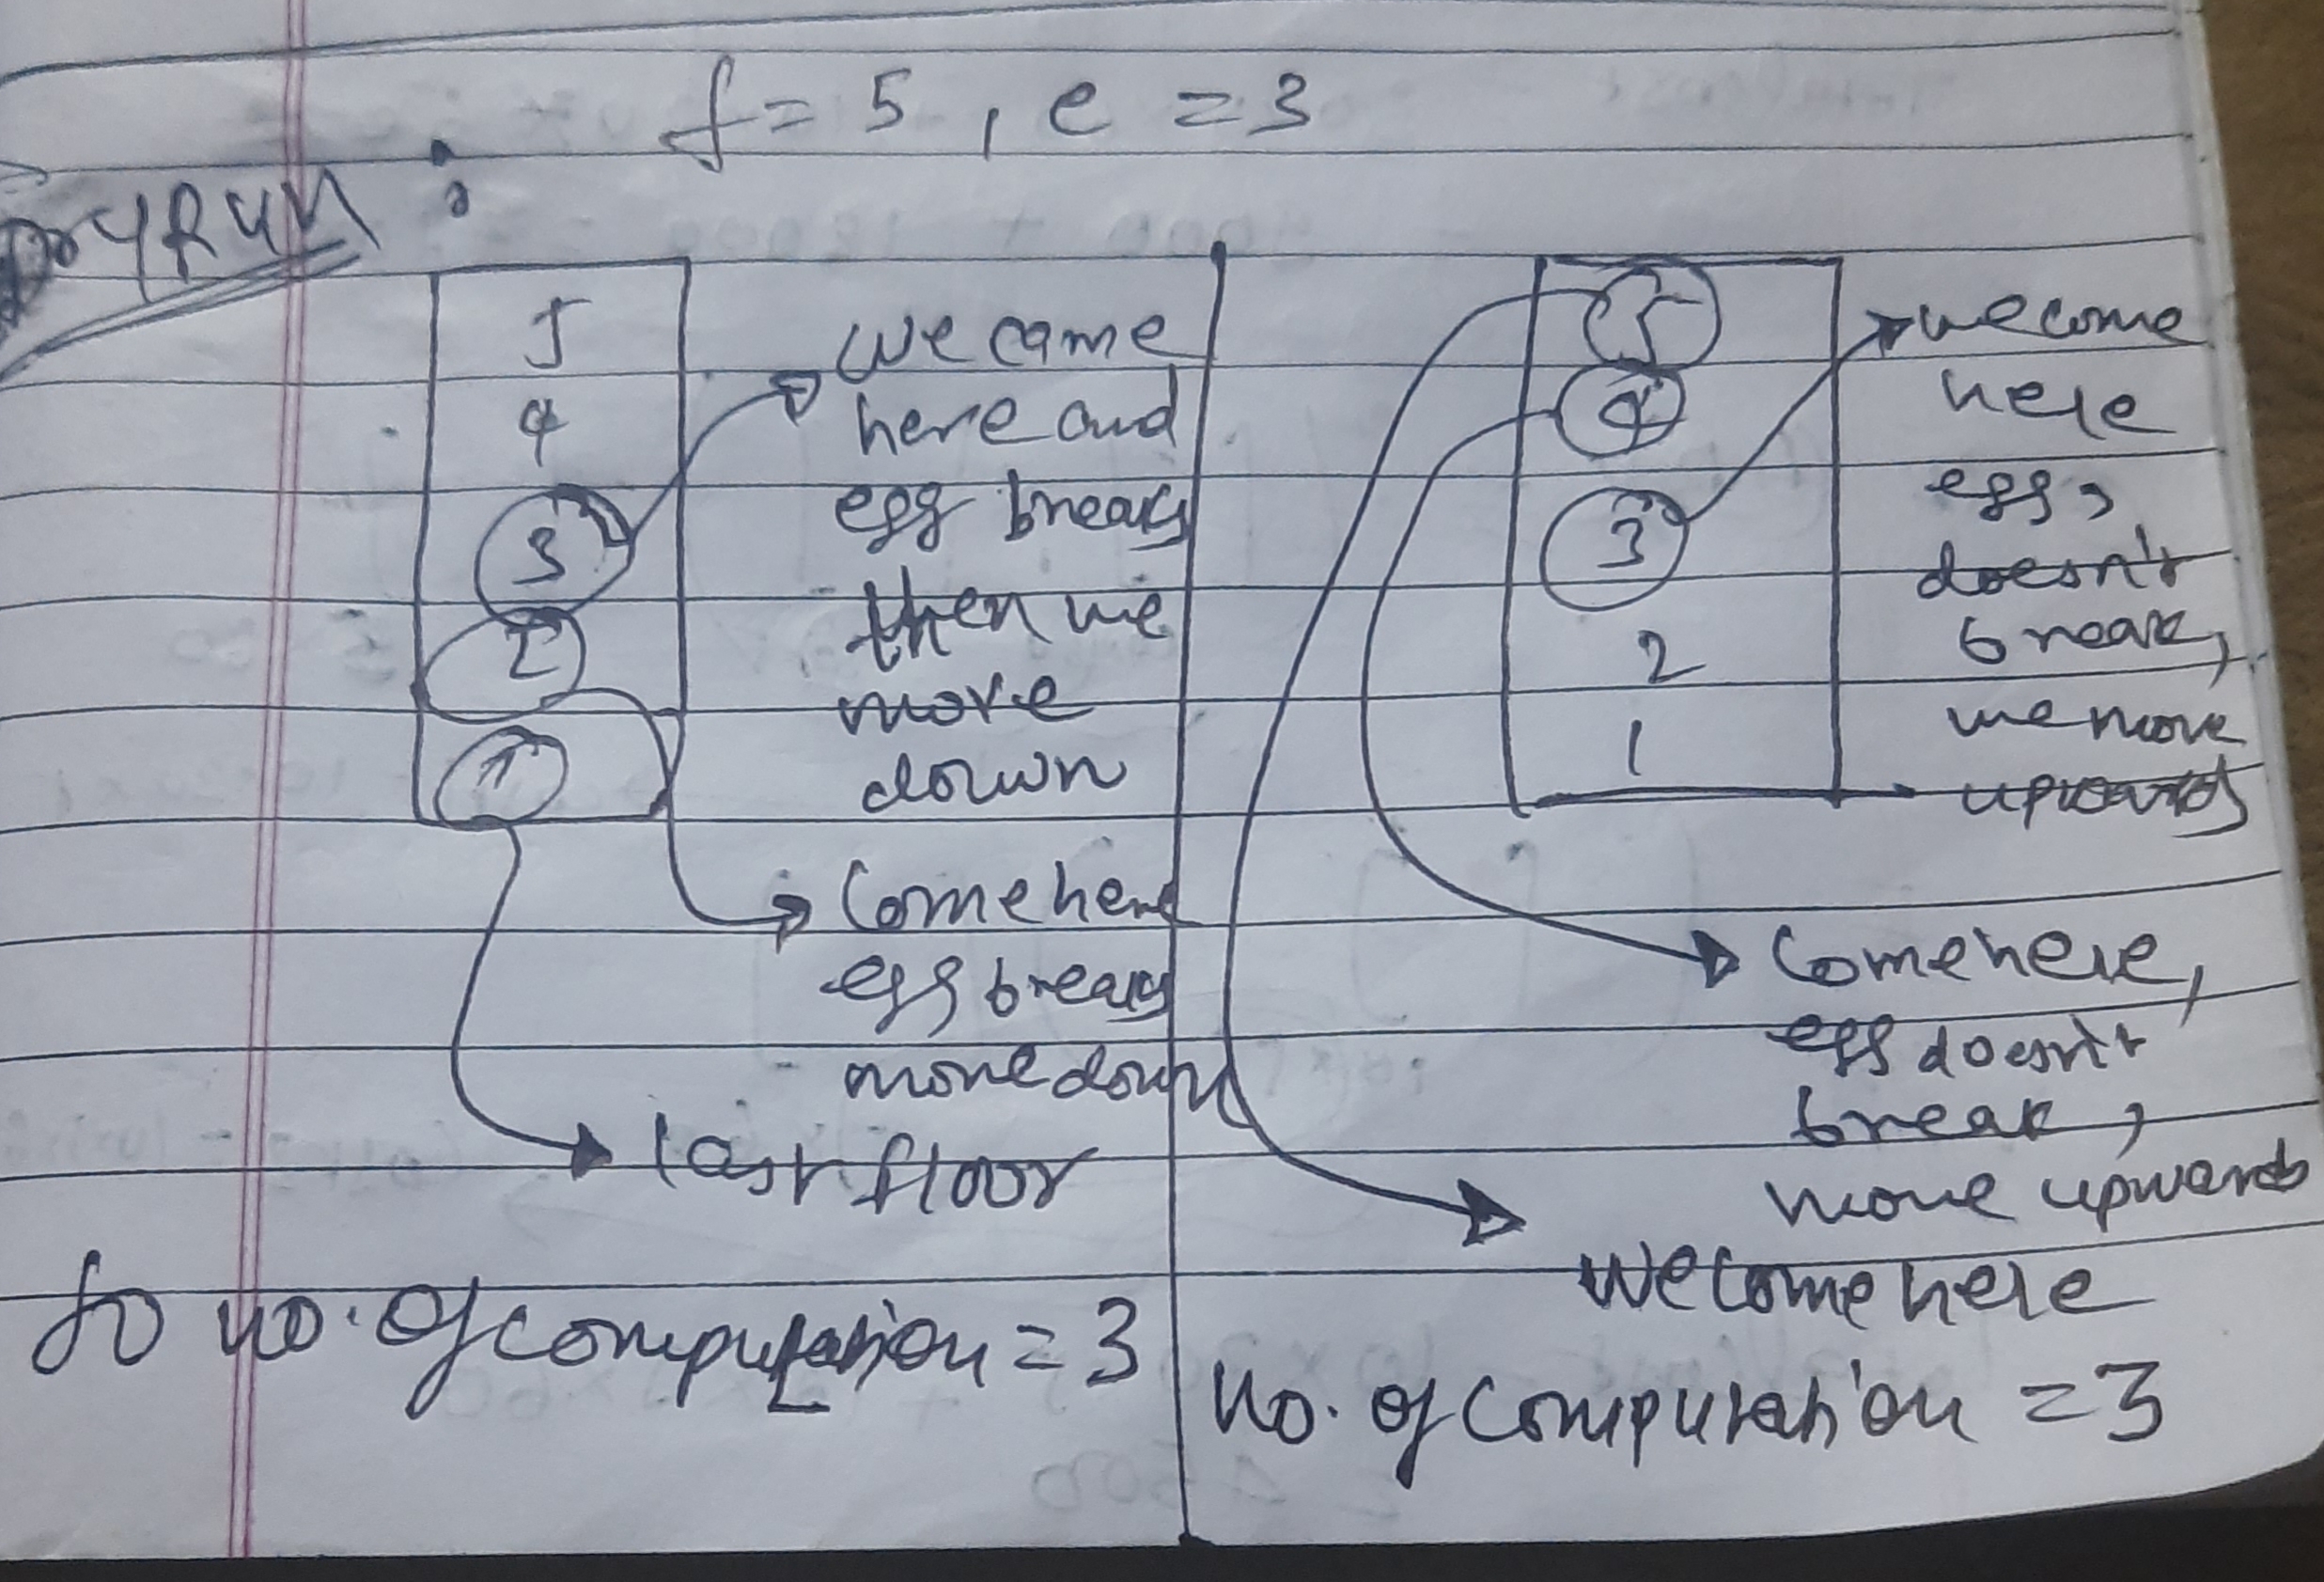 f = 5 , e = 3
DryRun :
5
4
3
2
1
we came
here and
egg breaks
then we
move
down
Come here
egg breaks
move down
last floor
So no. of computation = 3
5
4
3
2
1
we come
here
egg,
doesn't
break,
we move
upwards
Come here,
egg doesn't
break,
move upwards
We come here
no. of computation = 3